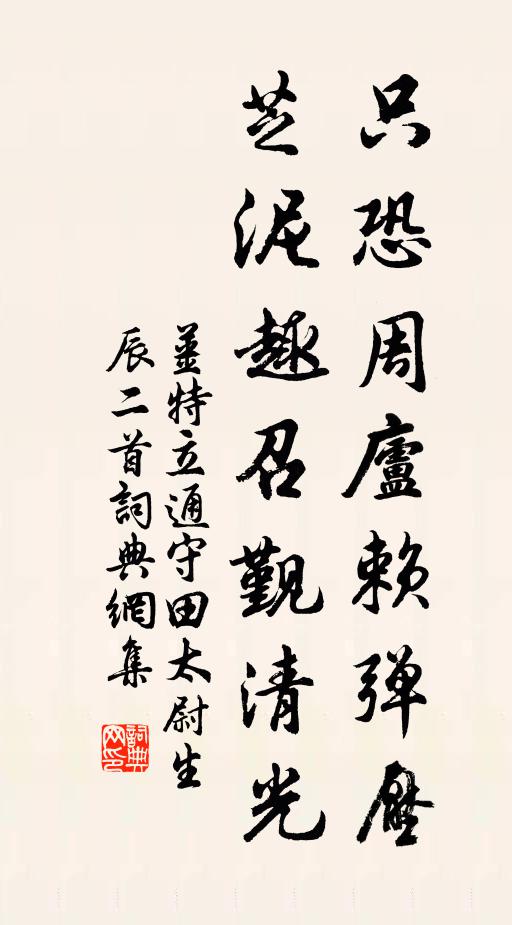 只恐周廬賴彈壓
芝泥趣召覲清光
姜特立通守田太尉生
辰二首詞典網集
詞典网印